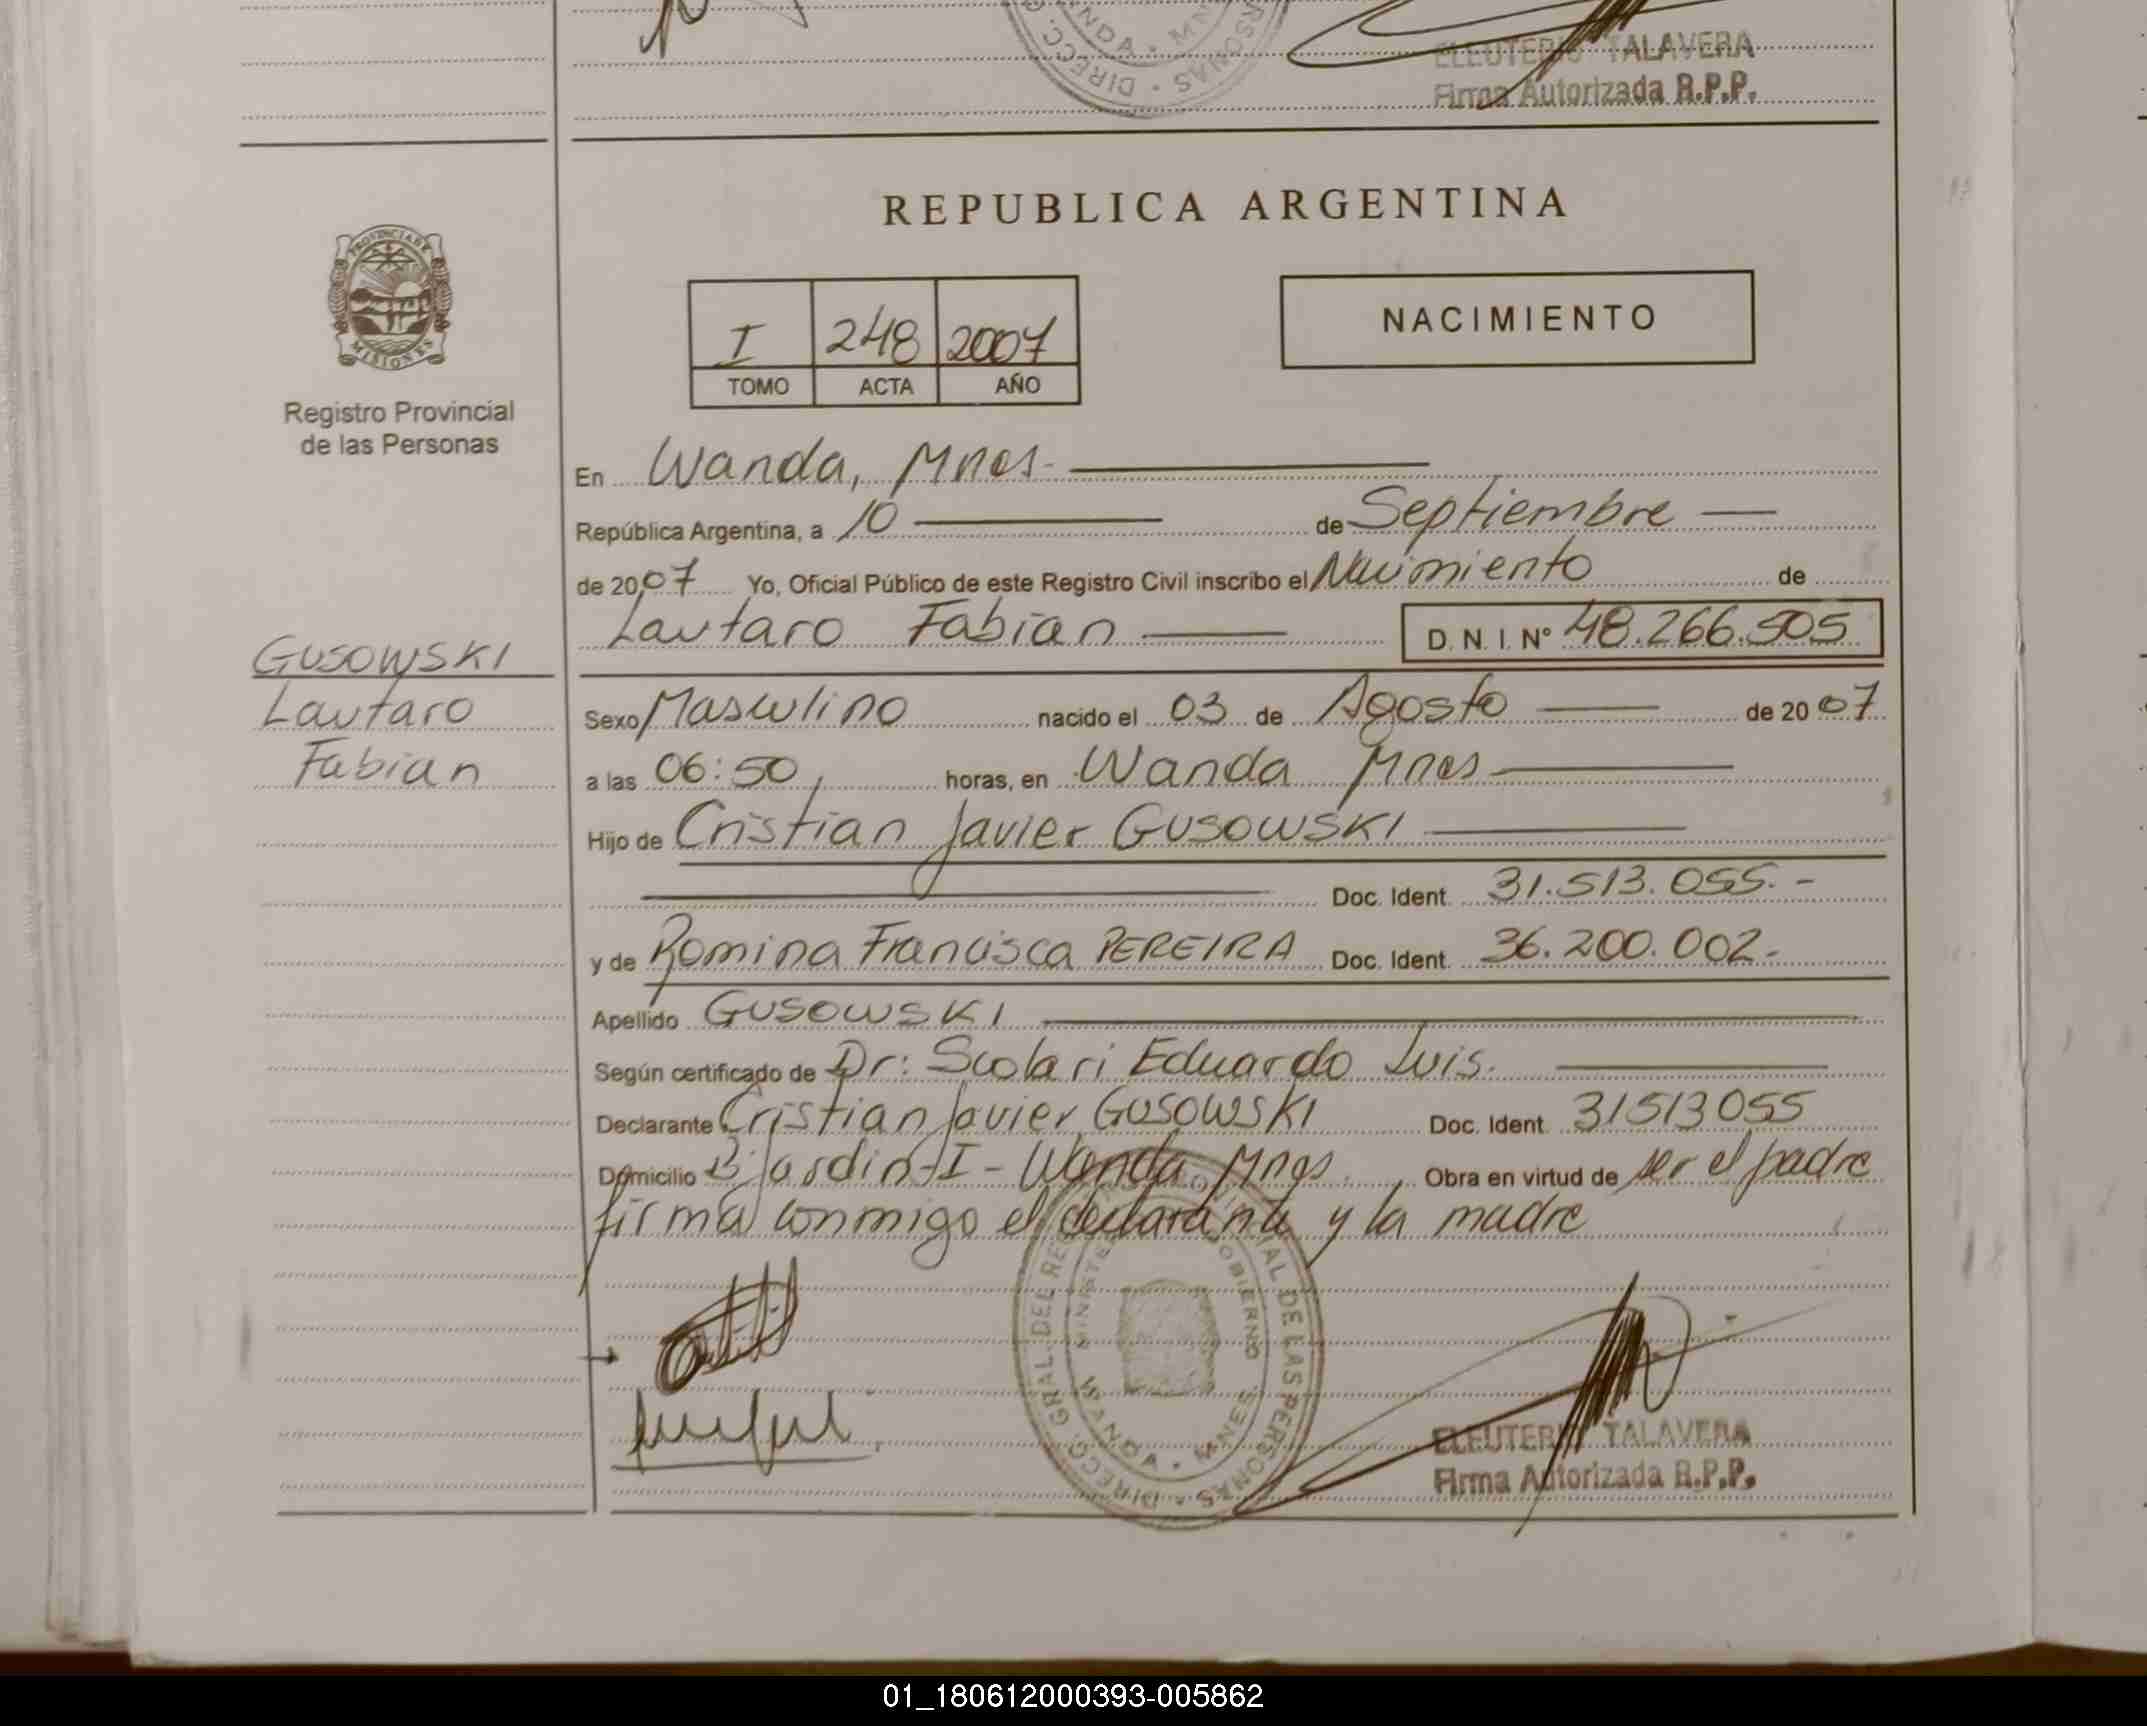 ELEUTERIO TALAVERA
Firma Autorizada R.P.P.
REPUBLICA ARGENTINA
PROVINCIA DE
MISIONES
Registro Provincial
de las Personas
I 248 2007
TOMO ACTA AÑO
NACIMIENTO
En Wanda, Mnes.
República Argentina, a 10 de Septiembre
de 2007 Yo, Oficial Público de este Registro Civil inscribo el Nacimiento de
Lautaro Fabian D. N. I. Nº 48.266.505
GUSOWSKI
Lautaro
Fabian
Sexo Masculino nacido el 03 de Agosto de 2007
a las 06:50 horas, en Wanda Mnes
Hijo de Cristian Javier GUSOWSKI
Doc. Ident. 31.513.055.-
y de Romina Francisca PEREIRA Doc. Ident. 36.200.002.-
Apellido GUSOWSKI
Según certificado de Dr: Scolari Eduardo Luis.
Declarante Cristian Javier GUSOWSKI Doc. Ident. 31513055
Domicilio Bº Jardin-I - Wanda Mnes. Obra en virtud de ser el padre
firma conmigo el declarante y la madre
DIRECC. GRAL. DEL REG. PROVINCIAL DE LAS PERSONAS
GOBIERNO
WANDA - MNES
ELEUTERIO TALAVERA
Firma Autorizada R.P.P.
01_180612000393-005862